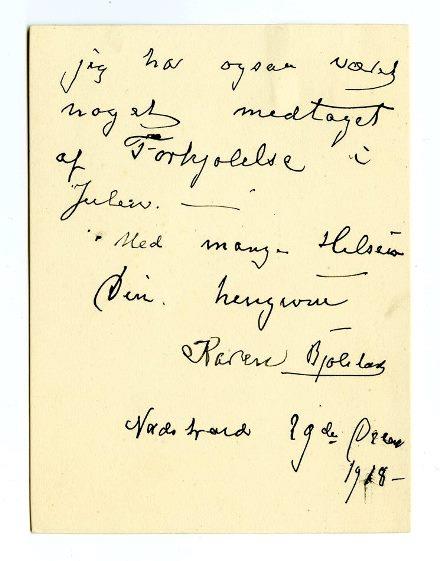 jeg har ogsaa været
noget medtaget
af Forkjølelse i
Julen. —
Med mange Hilsen
Din hengivne
Karen Bjølstad
Nordstrand 29de Decem
1918 –